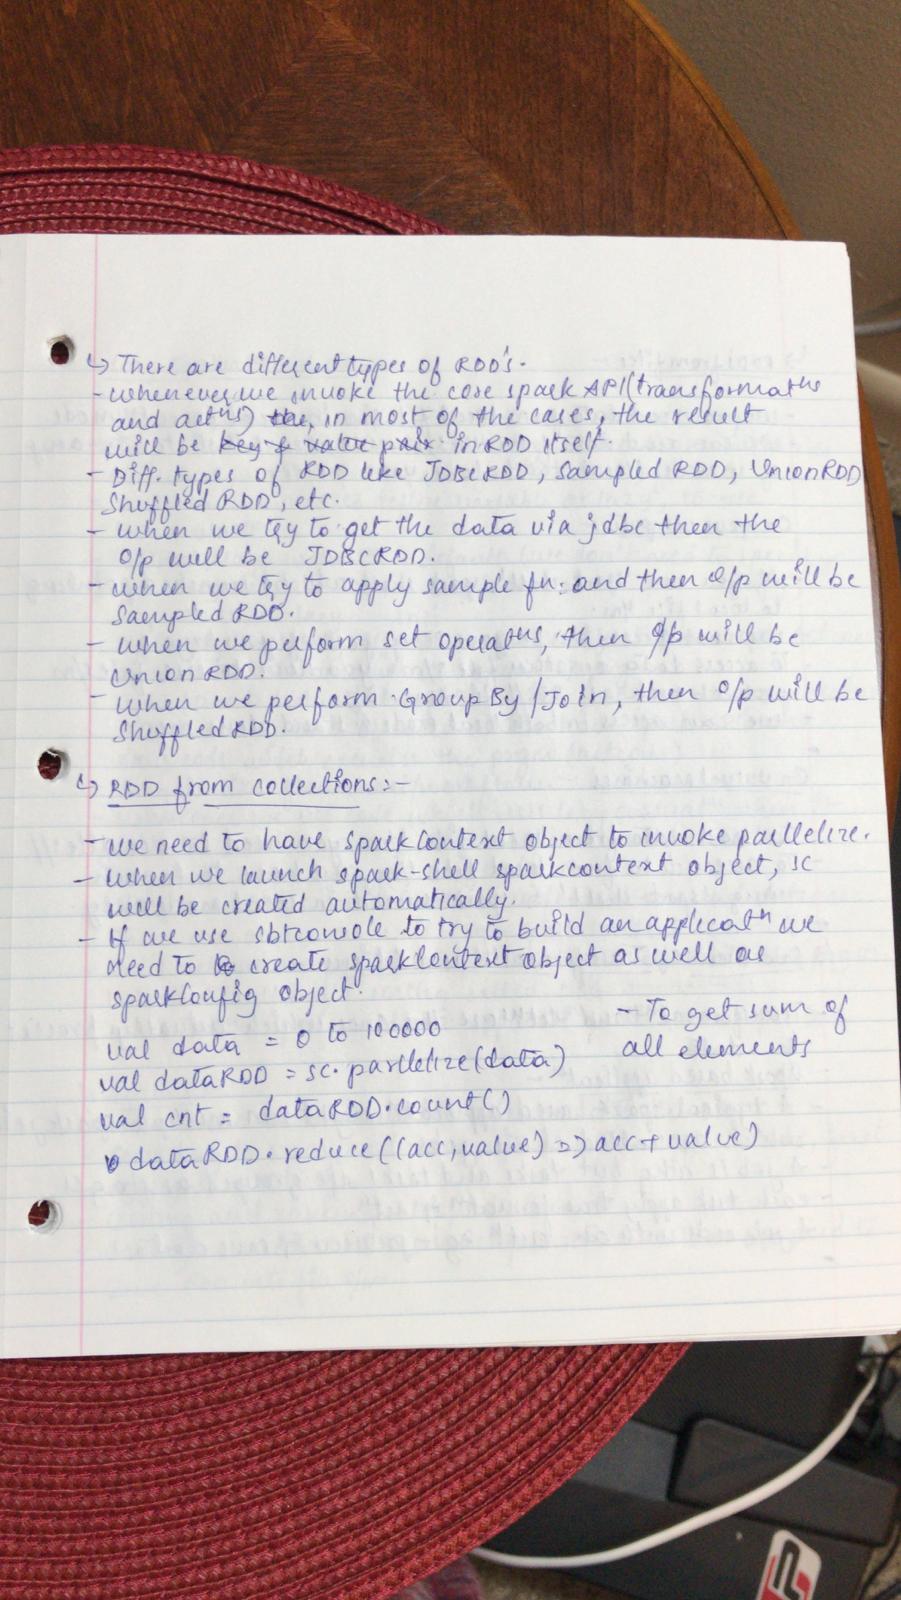 ↳ There are different types of RDD's.
- whenever we invoke the core spark API (transformatns
and actns) the, in most of the cases, the result
will be key & value pair in RDD itself.
- Diff. types of RDD like JDBCRDD, Sampled RDD, UnionRDD
Shuffled RDD, etc.
- when we try to get the data via jdbc then the
o/p will be JDBCRDD.
- when we try to apply sample fn: and then o/p will be
Sampled RDD.
- when we perform set operatns, then o/p will be
Union RDD.
- when we perform GroupBy/Join, then o/p will be
Shuffled RDD.
↳ RDD from collections:-
- we need to have SparkContext object to invoke parllelize.
- when we launch spark-shell sparkcontext object, sc
will be created automatically.
- If we use sbt console to try to build an applicatn we
need to create sparkContext object as well as
sparkConfig object.
val data = 0 to 100000
- To get sum of
all elements
val dataRDD = sc.parllelize(data)
val cnt = dataRDD.count()
dataRDD.reduce((acc,value) => acc+value)